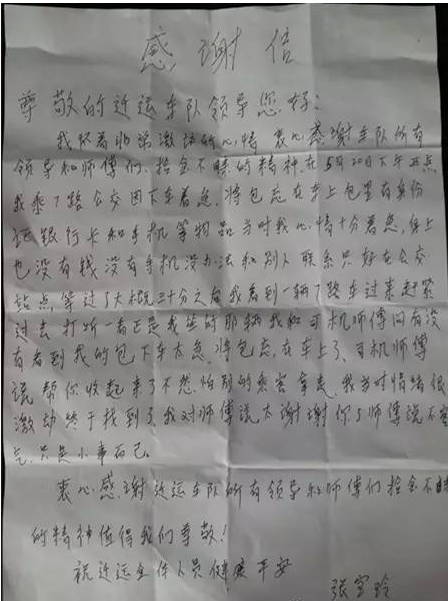 感谢信
尊敬的近运车队领导您好:
我怀着非常激动的心情 衷心感谢车队所有
领导和师傅们.拾金不昧的精神.在5月20日下午两点
我乘7路公交因下车着急.将包忘在车上包里有身份
证银行卡和手机等物品当时我心情十分着急.身上
也没有钱没有手机没办法和别人联系只好在公交
站点等过了大概三十分之后我看到一辆7路车过来赶紧
过去打听一看正是我坐的那辆我和司机师傅问有没
有看到我的包下车太急.将包忘在车上了.司机师傅
说帮你收起来了不然怕别的乘客拿走我当时情绪很
激动终于找到了我对师傅说太谢谢你了师傅说不客
气.只是小事而已
衷心感谢近运车队所有领导和师傅们拾金不昧
的精神值得我们尊敬!
祝近运全体人员健康平安
张宝玲